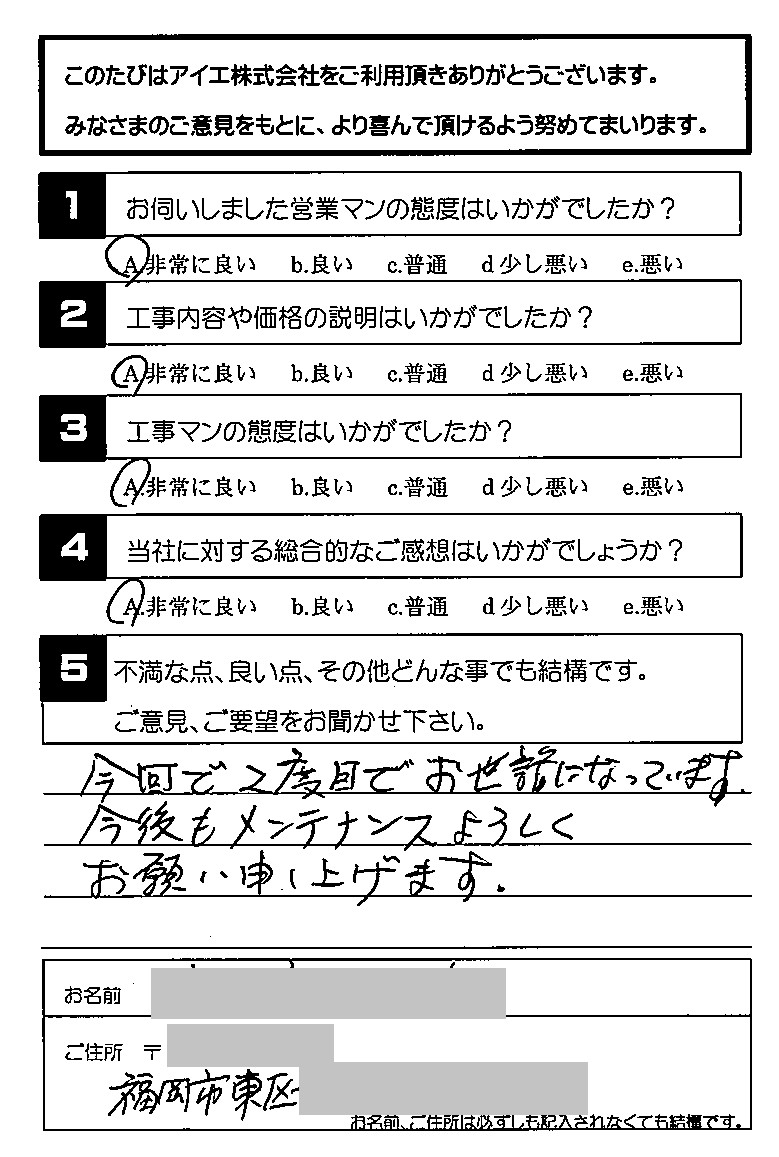 このたびはアイエ株式会社をご利用頂きありがとうございます。
みなさまのご意見をもとに、より喜んで頂けるよう努めてまいります。
1 お伺いしました営業マンの態度はいかがでしたか？
A.非常に良い b.良い c.普通 d少し悪い e.悪い
2 工事内容や価格の説明はいかがでしたか？
A.非常に良い b.良い c.普通 d少し悪い e.悪い
3 工事マンの態度はいかがでしたか？
A.非常に良い b.良い c.普通 d少し悪い e.悪い
4 当社に対する総合的なご感想はいかがでしょうか？
A.非常に良い b.良い c.普通 d少し悪い e.悪い
5 不満な点、良い点、その他どんな事でも結構です。
ご意見、ご要望をお聞かせ下さい。
今回で2度目でお世話になっています.
今後もメンテナンスよろしく
お願い申し上げます.
お名前
ご住所 〒
福岡市東区
お名前、ご住所は必ずしも記入されなくても結構です。